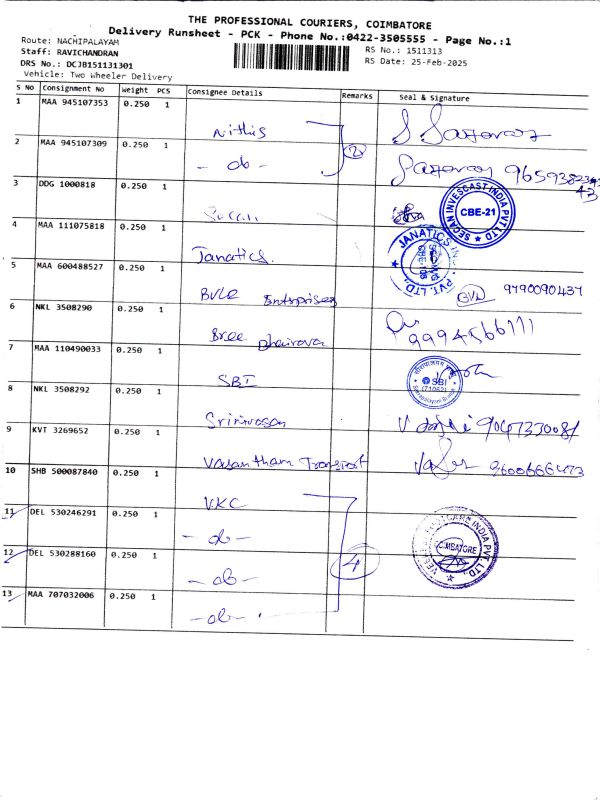 THE PROFESSIONAL COURIERS, COIMBATORE
Delivery Runsheet - PCK - Phone No.:0422-3505555 - Page No.:1
Route: NACHIPALAYAM
RS No.: 1511313
Staff: RAVICHANDRAN
RS Date: 25-Feb-2025
DRS No.: DCJB151131301
Vehicle: Two Wheeler Delivery
S No Consignment No Weight PCS Consignee Details Remarks Seal & Signature
1 MAA 945107353 0.250 1 Nithis
2 MAA 945107309 0.250 1 - do - 2
3 DDG 1000818 0.250 1 SEOAN INVESCAST INDIA PVT LTD CBE-21
4 MAA 111075818 0.250 1 Janatics. JANATICS PVT. LTD.
5 MAA 600488527 0.250 1 BVLE Enterprises 9790090437
6 NKL 3508290 0.250 1 Bree Bhairava 9994566111
7 MAA 110490033 0.250 1 SBI SBI (71062)
8 NKL 3508292 0.250 1 Srinivasan
9 KVT 3269652 0.250 1 Vasantham Transport 9600666473
10 SHB 500087840 0.250 1 VKC
11 DEL 530246291 0.250 1 - do -
12 DEL 530288160 0.250 1 - do - 4 COIMBATORE INDIA PVT. LTD.
13 MAA 707032006 0.250 1 - do -